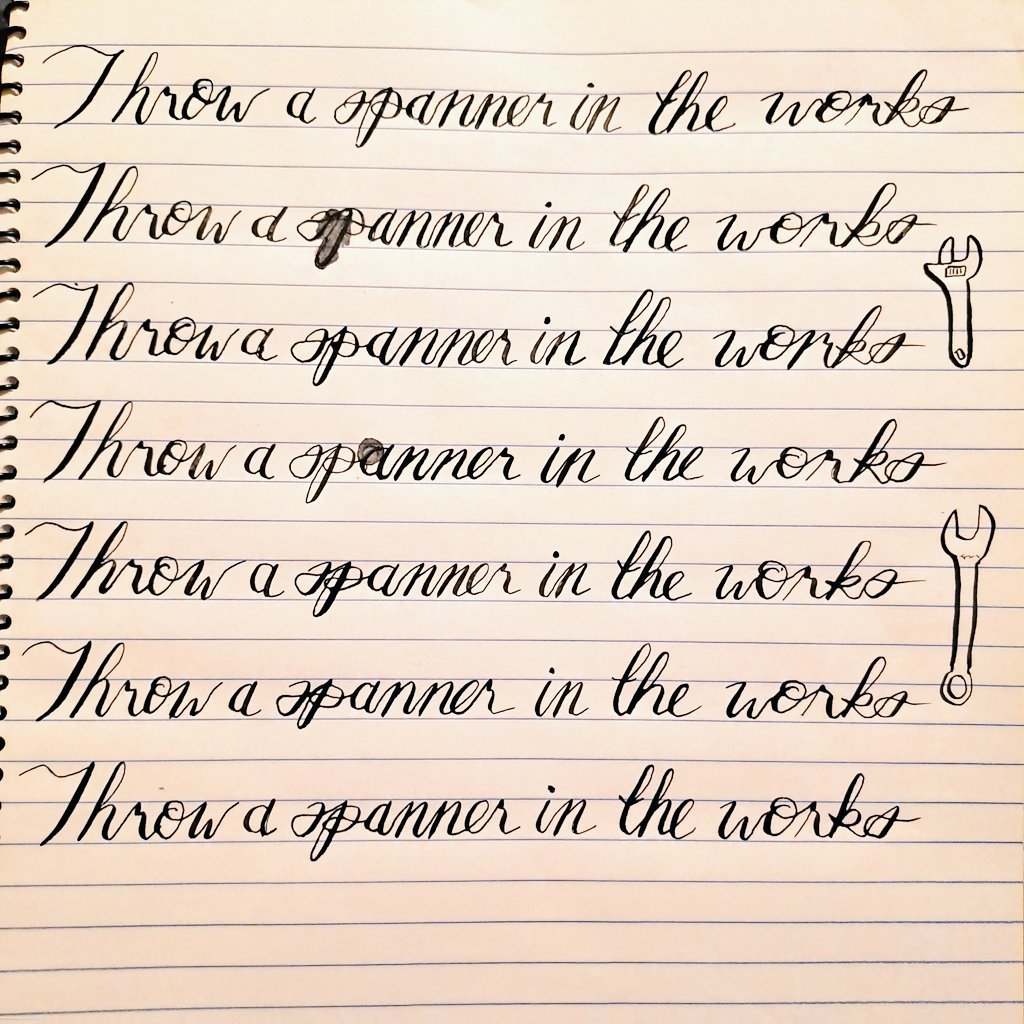 Throw a spanner in the works
Throw a spanner in the works
Throw a spanner in the works
Throw a spanner in the works
Throw a spanner in the works
Throw a spanner in the works
Throw a spanner in the works